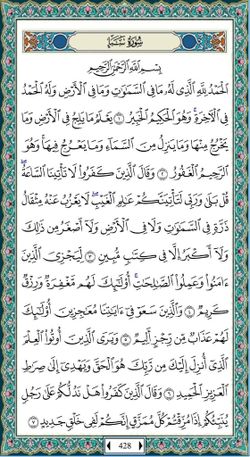 سورة سبإ
بسم الله الرحمن الرحيم
الحمد لله الذي له ما في السموات وما في الأرض وله الحمد
في الآخرة وهو الحكيم الخبير ١ يعلم ما يلج في الأرض وما
يخرج منها وما ينزل من السماء وما يعرج فيها وهو
الرحيم الغفور ٢ وقال الذين كفروا لا تأتينا الساعة
قل بلى وربي لتأتينكم عالم الغيب لا يعزب عنه مثقال
ذرة في السموات ولا في الأرض ولا أصغر من ذلك
ولا أكبر إلا في كتاب مبين ٣ ليجزي الذين
ءامنوا وعملوا الصالحات أولئك لهم مغفرة ورزق
كريم ٤ والذين سعو في ءاياتنا معاجزين أولئك
لهم عذاب من رجز أليم ٥ ويرى الذين أوتوا العلم
الذي أنزل إليك من ربك هو الحق ويهدي إلى صراط
العزيز الحميد ٦ وقال الذين كفروا هل ندلكم على رجل
ينبئكم إذا مزقتم كل ممزق إنكم لفي خلق جديد ٧
428